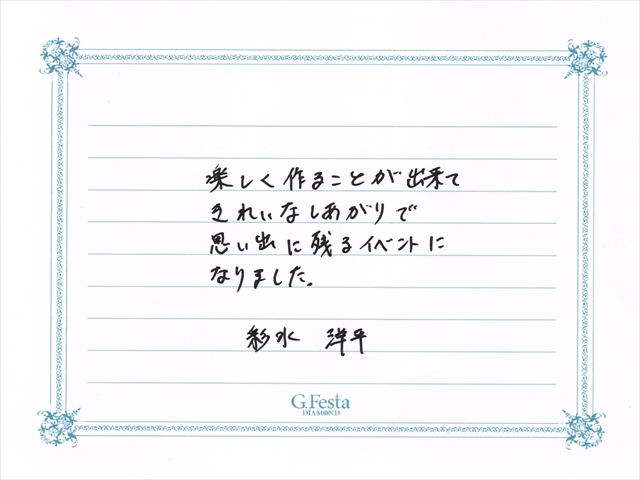 楽しく作ることが出来て
きれいなしあがりで
思い出に残るイベントに
なりました。
彩水 洋平
G.Festa
DIAMOND